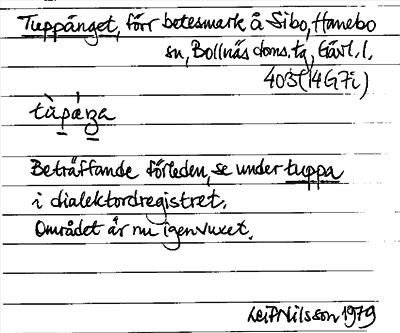 Tuppänget, förr betesmark å Sibo, Hanebo
sn, Bollnäs doms. tg, Gävl. l.
403 (14G7i)
Beträffande förleden, se under tuppa
i dialektordregistret.
Området är nu igenvuxet.
Leif Nilsson 1979